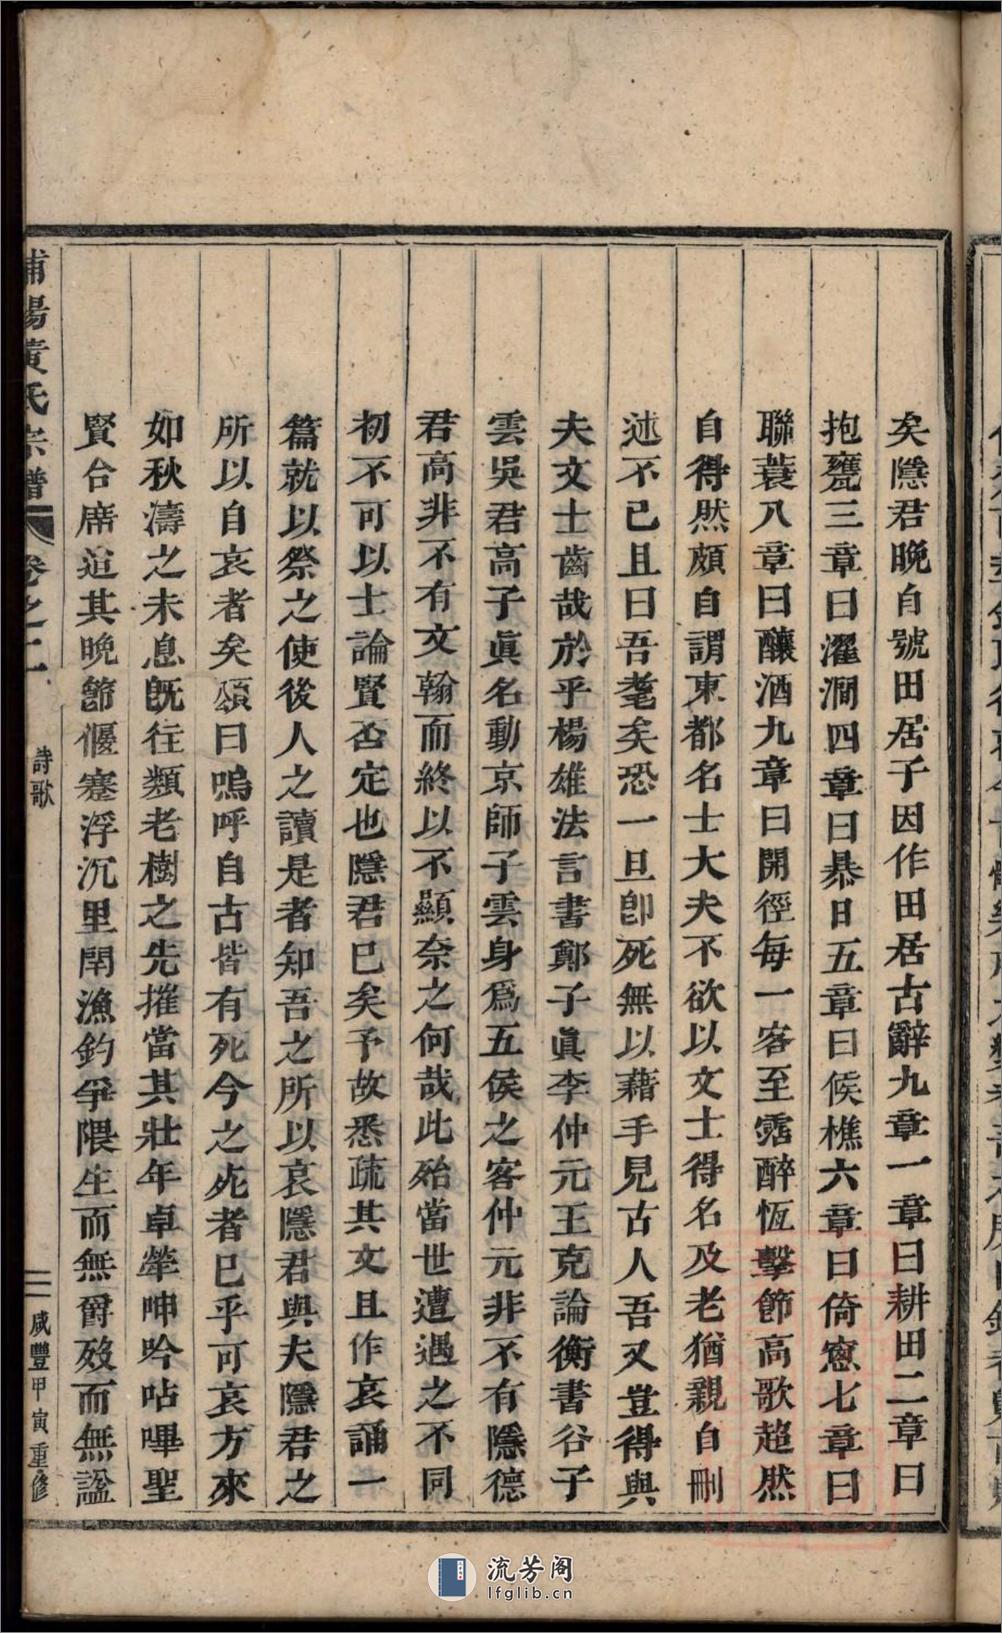 矣隱君晚自號田居子因作田居古辭九章一章曰耕田二章曰
抱甕三章曰濯澗四章曰暴日五章曰候樵六章曰倚窻七章曰
聯蓑八章曰釀酒九章曰開徑每一客至霑醉恆擊節高歌超然
自得然頗自謂東都名士大夫不欲以文士得名及老猶親自刪
述不已且曰吾耄矣恐一旦卽死無以藉手見古人吾又豈得與
夫文士齒哉於乎楊雄法言書鄭子眞李仲元王克論衡書谷子
雲吳君高子眞名動京師子雲身爲五侯之客仲元非不有隱德
君高非不有文翰而終以不顯奈之何哉此殆當世遭遇之不同
初不可以士論賢否定也隱君已矣予故悉疏其文且作哀誦一
篇就以祭之使後人之讀是者知吾之所以哀隱君與夫隱君之
所以自哀者矣頌曰嗚呼自古皆有死今之死者已乎可哀方來
如秋濤之未息旣往類老樹之先摧當其壯年卓犖呻吟呫嗶聖
賢合席迨其晚節偃蹇浮沉里閈漁釣爭隈生而無爵歿而無謚
浦陽黃氏宗譜 卷之二 詩歌 二 咸豐甲寅重修
流芳阁
lfglib.cn